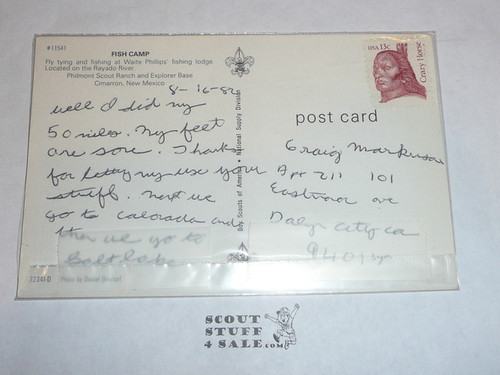 #11541
FISH CAMP
Fly tying and fishing at Waite Phillips' fishing lodge
Located on the Rayado River.
Philmont Scout Ranch and Explorer Base
Cimarron, New Mexico
8-16-82
well I did my
50 miles. My feet
are sore. Thanks
for letting my use your
stuff. Next we
go to Calorada and
th
then we go to
Salt lake
32341-D
Boy Scouts of America • National Supply Division
USA 13c
Crazy Horse
post card
Craig
Apt 211 101
Eastmoor ave
Daly city ca
SCOUT
STUFF
4 SALE.COM